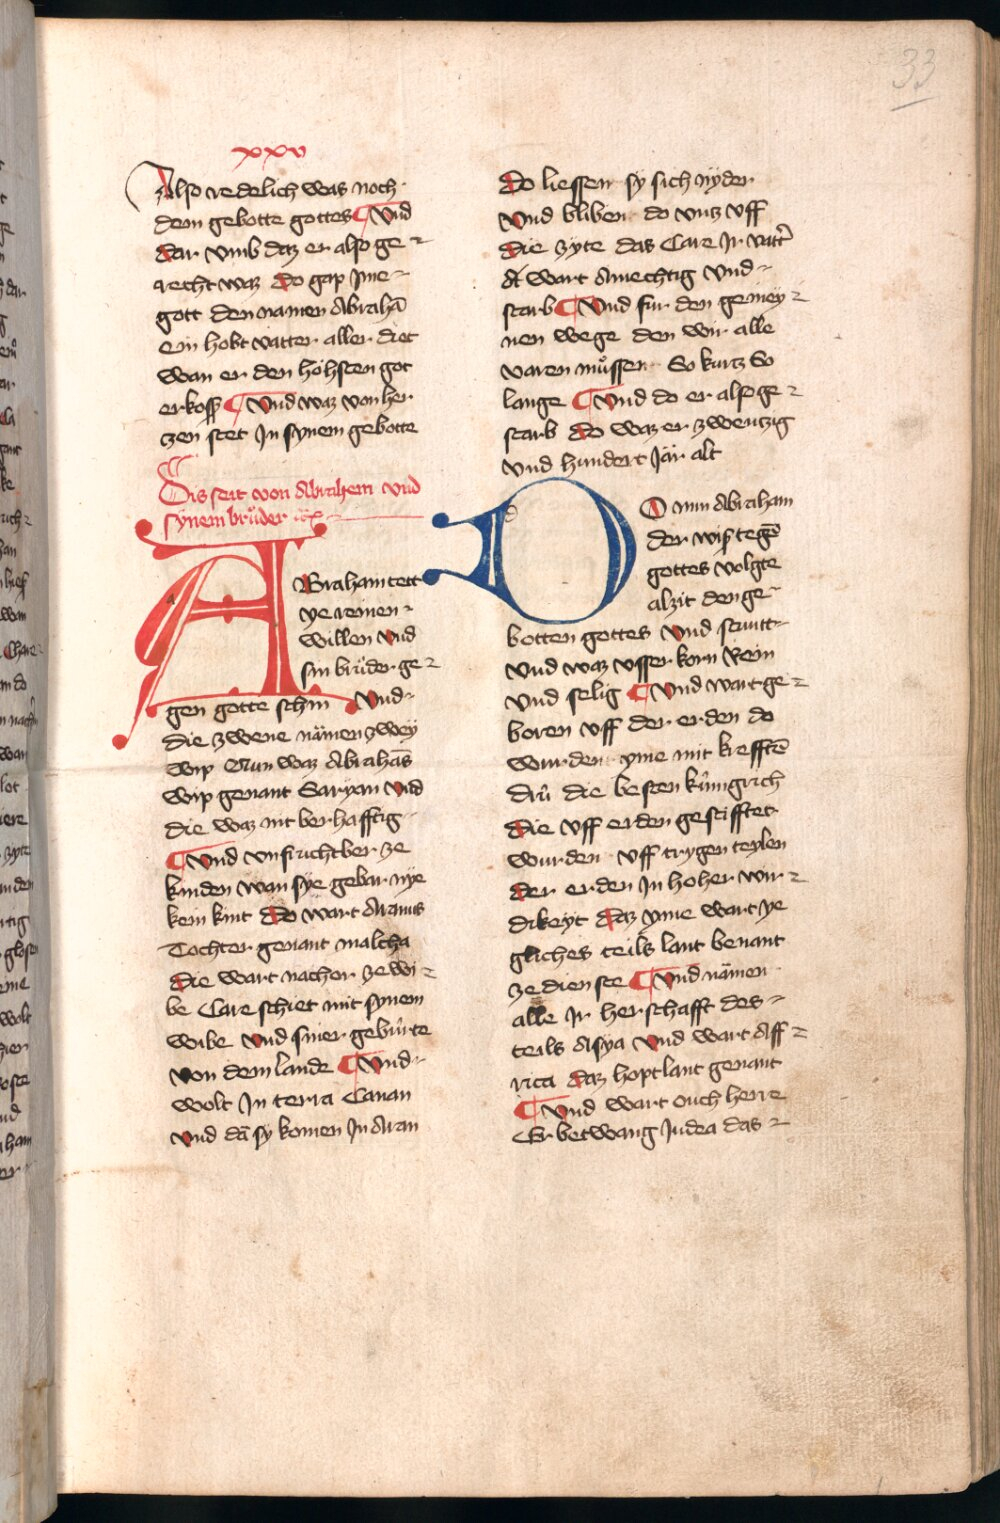 33
xxv
Also redelich was noch
dem gebotte gottes Vnd
dar vmb daz er also ge
recht waz do gap jme
gott den namen Abrahā
ein hobt vatter aller diet
wan er den höhsten got
erkoß Vnd waz von her
zen stet In synem gebotte
Dis seit von Abrahem vnd
synem brůder
ABraham tett
ye reinen
willen vnd
sin brůder ge
gen gotte schin Vnd
die zwene nämen zwey
wip Nun waz Abrahās
wip genant Saryan vnd
die waz nit berhafftig
Vnd vnfruchtber ze
kinden wan sye gebar nye
kein kint do wart Arams
Tochter genant malcha
die wart nachor ze wi
be Care schiet mit synem
wibe vnd siner gebůrte
von dem lande Vnd
wolt In terra Canan
vnd dā sy komen In Aran
do liessen sy sich nyder
vnd bliben do vnz vff
die zyte das Care Ir vatt'
wart Amechtig vnd
starb Vnd fůr den gemey
nen wege den wir alle
varen můssen So kurz So
lange Vnd do er also ge
starb do waz er zwenzig
vnd hundert Jär alt
DO nun Abraham
der wis tegē
gottes volgte
alzit den ge
botten gottes vnd
vnd waz vsser korn Rein
vnd selig Vnd wart ge
boren vff der erden do
wurden yme mit krefftē
drů die besten kůngrich
die vff erden gestifftet
wurden vff trygen teylen
der erden In hoher wir
dikeyt daz yme wart ye
gliches teils lant benant
ze dienste Vnd nämen
alle Ir herschafft des
teils Asya vnd wart Aff
rica daz hoptlant genant
Vnd wart ouch herre
Er betwang Judea das